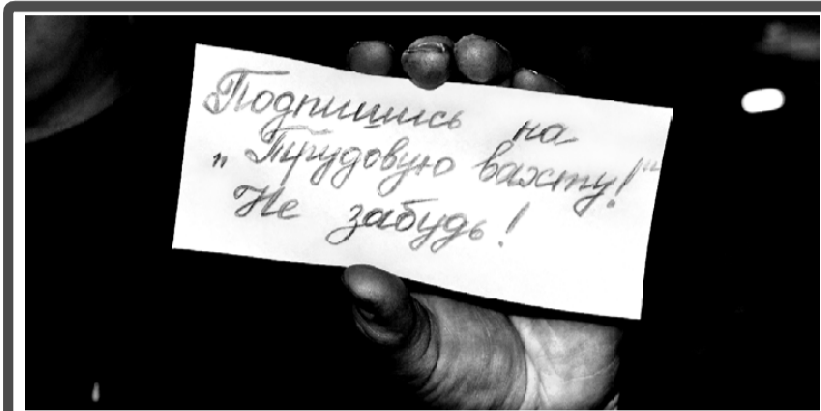 Подпишись на
„Трудовую вахту!“
Не забудь!